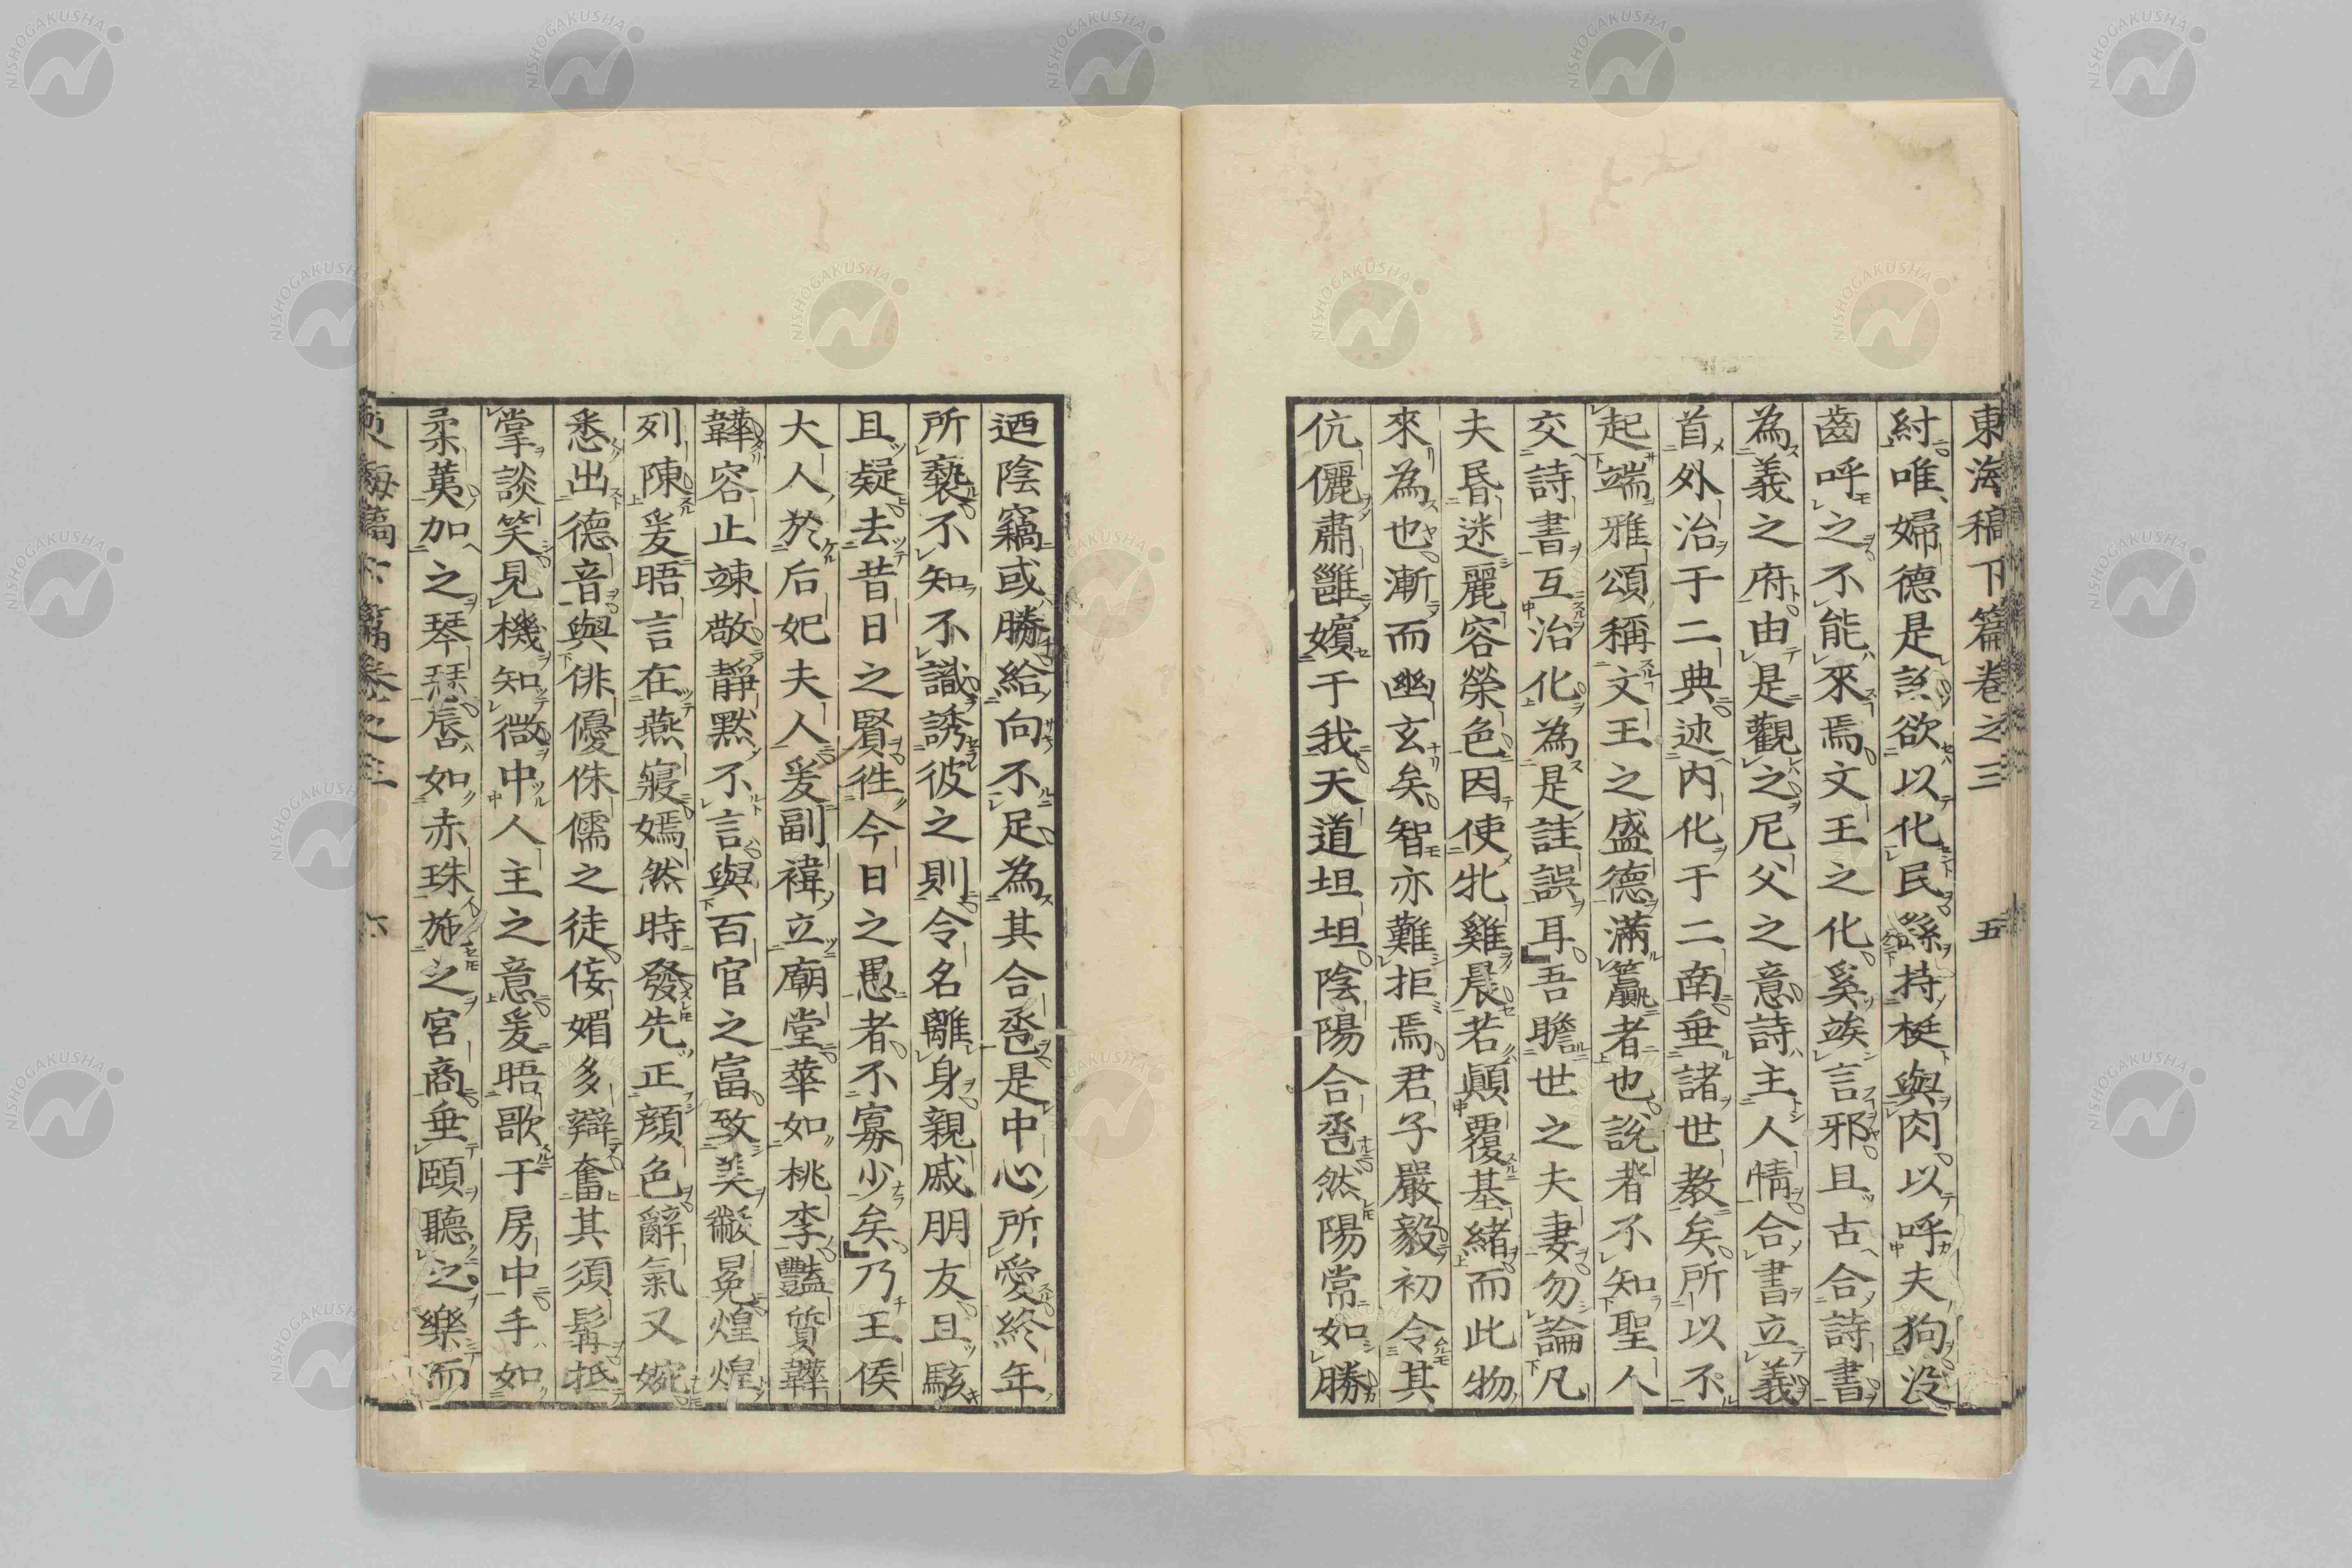 東海稿下篇卷之三 五
紂唯婦德是該欲以化民縣持梃與肉以呼夫狗沒
齒呼之不能來焉文王之化奚竢言邪且古合詩書
為義之府由是觀之尼父之意詩主人情合書立義
首外治于二典述內化于二南垂諸世教矣所以不
起端雅頌稱文王之盛德滿籯者也說者不知聖人
交詩書互治化為是註誤耳吾瞻世之夫妻勿論凡
夫昏迷麗容榮色因使牝雞晨若顚覆基緒而此物
來為也漸而幽玄矣智亦難拒焉君子嚴毅初令其
伉儷肅雝嬪于我天道坦坦陰陽合巹然陽常如勝
迺陰竊或勝給向不足為其合巹是中心所愛終年
所褻不知不識誘彼之則令名離身親戚朋友且駭
且疑去昔日之賢徃今日之愚者不寡少矣乃王侯
大人於后妃夫人爰副褘立廟堂華如桃李豔質韡
韡容止竦敬靜默不言與百官之富致美黻冕煌煌
列陳爰晤言在燕寢嫣然時發先正顏色辭氣又婉
悉出德音與俳優侏儒之徒侫媚多辯奮其須髯抵
掌談笑見機知微中人主之意爰晤歌于房中手如
柔荑加之琴瑟唇如赤珠施之宮商垂頤聽之樂而
東海稿下篇卷之三 六
NISHOGAKUSHA